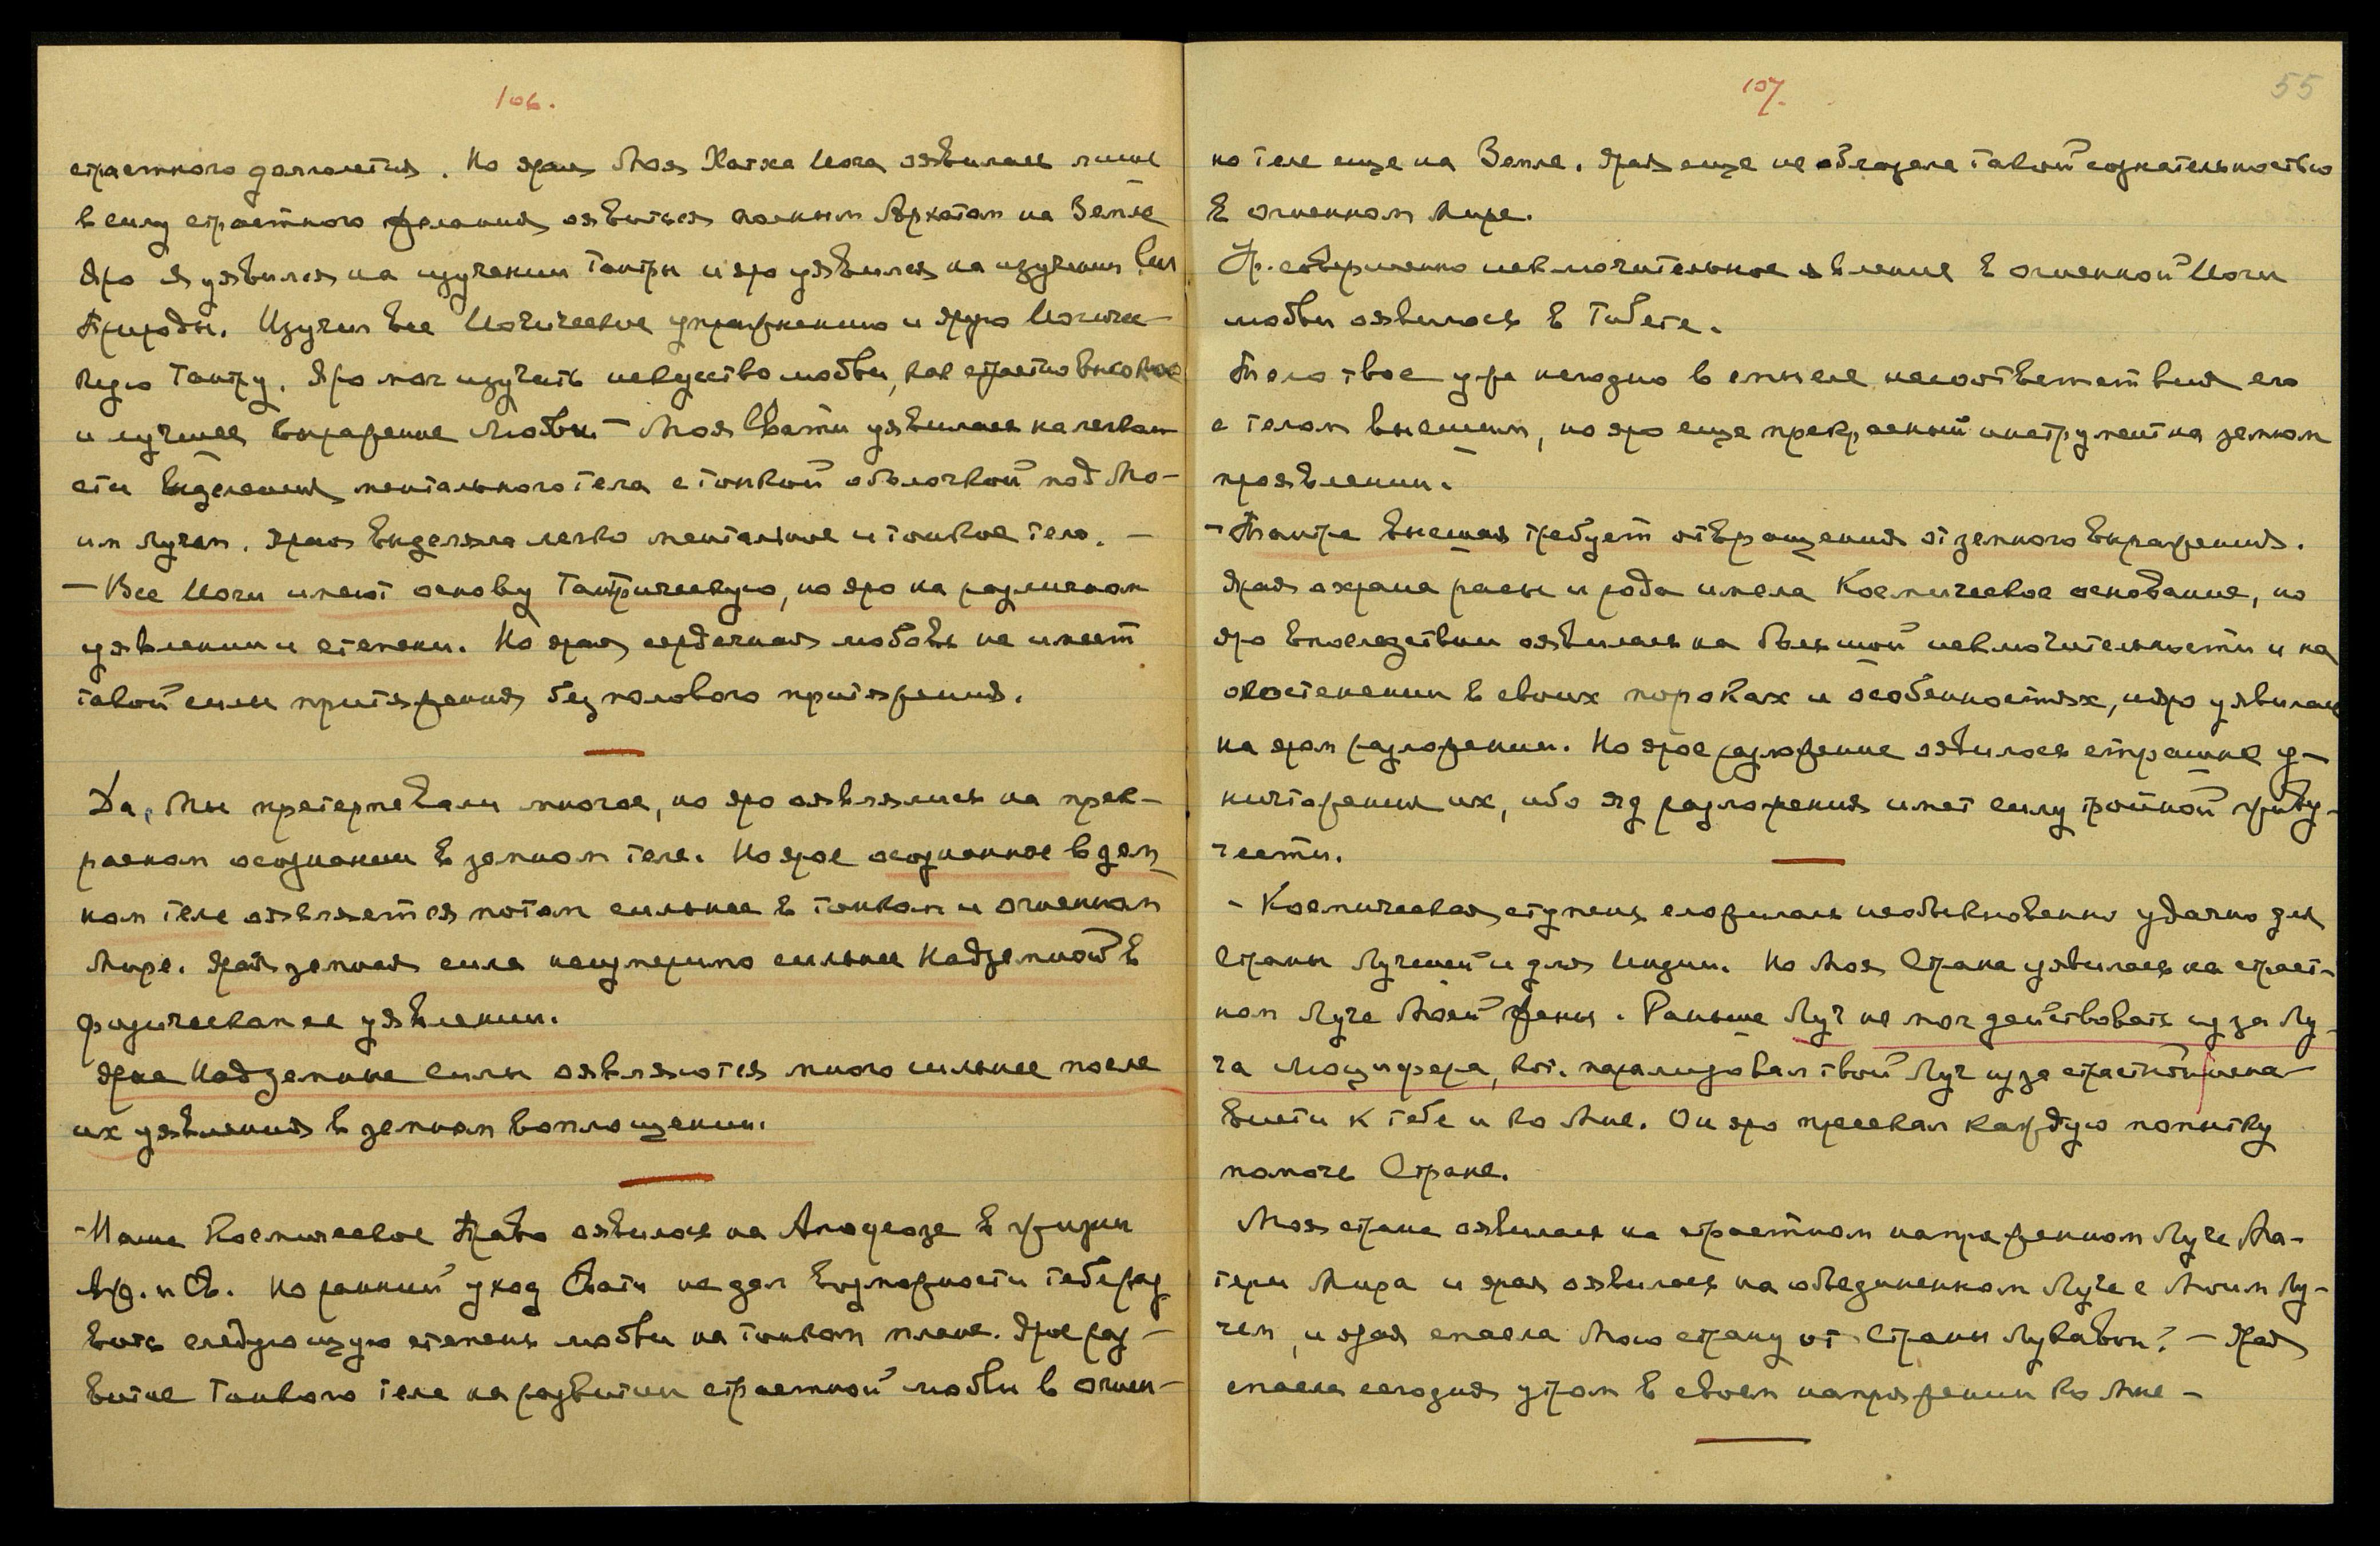 106.
страстного долголетия. Но ярая Моя Хатха Йога оявилась лишь
в силу страстного желания оявиться полным Архатом на Земле
Яро Я уявился на изучении Тантры и яро уявился на изучении Сил
Природы. Изучил все Йогические упражнения и ярую Йогиче-
скую Тантру. Яро мог изучить искусство любви, как страстно высокое
и лучшее выражение Любви — Моя Свати уявилась на легкос-
ти выделения ментального тела с тонкой оболочкой под Мо-
им Лучом. Ярая выделяла легко ментальное и тонкое тело. —
— Все Йоги имеют основу Тантрическую, но яро на различном
уявлении и степени. Но ярая сердечная любовь не имеет
такой силы притяжения без полового притяжения.
Да, Мы претерпевали многое, но яро оявлялись на прек-
расном осознании в земном теле. Но ярое осознанное в зем-
ном теле оявляется потом сильнее в тонком и огненном
Мире. Ярая земная сила неизмеримо сильнее Надземной в
физическом ее уявлении.
Ярые Надземные Силы оявляются много сильнее после
их уявления в земном воплощении.
- Наше Космическое Право оявилось на Апофеозе в жизни
Ар. и Св. Но ранний уход Свати не дал возможности тебе раз
вить следующую степень любви на тонком плане. Ярое раз-
витие тонкого тела на развитии страстной любви в огнен-
107.
55
но теле еще на Земле. Ярая еще не обладала такой сознательностью
в огненном Мире.
Яр. совершенно исключительное явление в огненной Йоги
любви оявилось в Тибете.
Тело твое уже негодно в смысле несоответствия его
с телом высшим, но яро еще прекрасный инструмент на земном
проявлении.
- Тантра высшая требует отвращения от земного выражения.
Ярая охрана расы и рода имела Космическое основание, но
яро впоследствии оявилась на большой исключительности и на
окостенении в своих пороках и особенностях, и яро уявилась
на яром разложении. Но ярое разложение оявилось страшнее у-
ничтожения их, ибо яд разложения имеет силу тройной живу-
чести.
- Космическая ступень сложилась необыкновенно удачно для
Страны Лучшей и для Индии. Но Моя Страна уявилась на страст-
ном Луче Моей Жены. Раньше Луч не мог действовать из за Лу-
ча Люцифера, кот. парализовал твой Луч из за страстной нена-
висти к тебе и ко Мне. Он яро пресекал каждую попытку
помочь Стране.
Моя страна оявилась на страстном напряженном Луче Ма-
тери Мира и ярая оявилась на объединенном Луче с Моим Лу-
чем, и ярая спасла Мою страну от Страны Лукавой. — Ярая
спасла сегодня утром в своем напряжении ко Мне —